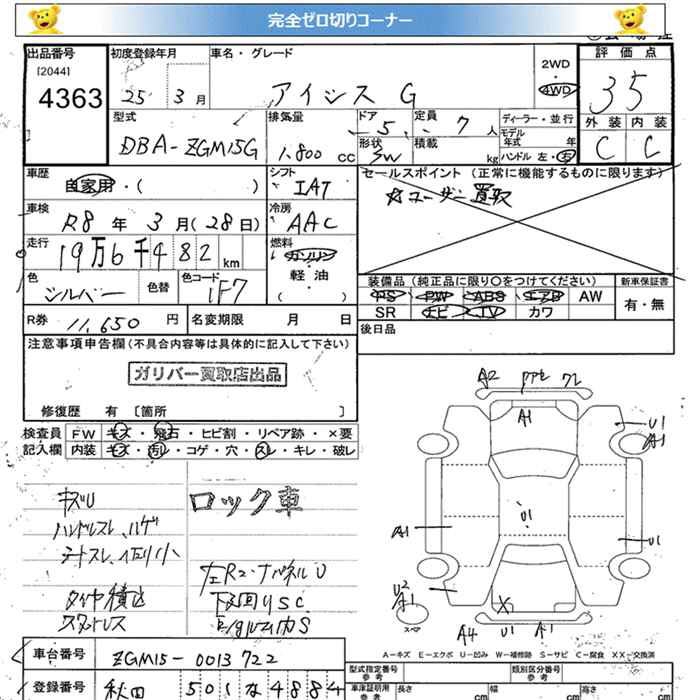 完全ゼロ切りコーナー
出品番号 初度登録年月 車名・グレード 2WD・4WD 評価点
[2044]
4363 25 3月 アイシス G 35
型式 排気量 ドア 5 定員 7人 ディーラー・並行 外装 内装
DBA-ZGM15G 1,800cc 形状 SW 積載 kg モデル年式 年 C C
ハンドル 左・右
車歴 自家用・( ) シフト IAT セールスポイント (正常に機能するものに限ります)
☆ユーザー買取
車検 R8年 3月(28日) 冷房 AAC
走行 19万6千482km 燃料 ガソリン
軽・油
( )
色 シルバー 色替 色コード 1F7
装備品 (純正品に限り○をつけてください) 新車保証書
PS PW ABS エアB AW 有・無
SR ナビ TV カワ
R券 11,650円 名変期限 月 日
後日品
注意事項申告欄(不具合内容等は具体的に記入して下さい)
ガリバー買取店出品
修復歴 有 [箇所 ]
検査員 FW キズ・飛石・ヒビ割・リペア跡・×要
記入欄 内装 キズ・汚れ・コゲ・穴・スレ・キレ・破レ
キズU ロック車
ハンドルスレ、ハゲ
シートスレ、
タイヤ積込 下回りSC
スタットレス
A2 ワレ
A1
U1
A1
A1
U1
U1
U2
A1
X1
スペア
A4 U1 A1
A-キズ E-エクボ U-凹み W-補修跡 S-サビ C-腐食 XX-交換済
車台番号 ZGM15-0013722
登録番号 秋田 501 な 4884
型式指定番号 類別区分番号
参考
車庫証明用 長さ 幅 高さ
参考 cm cm cm